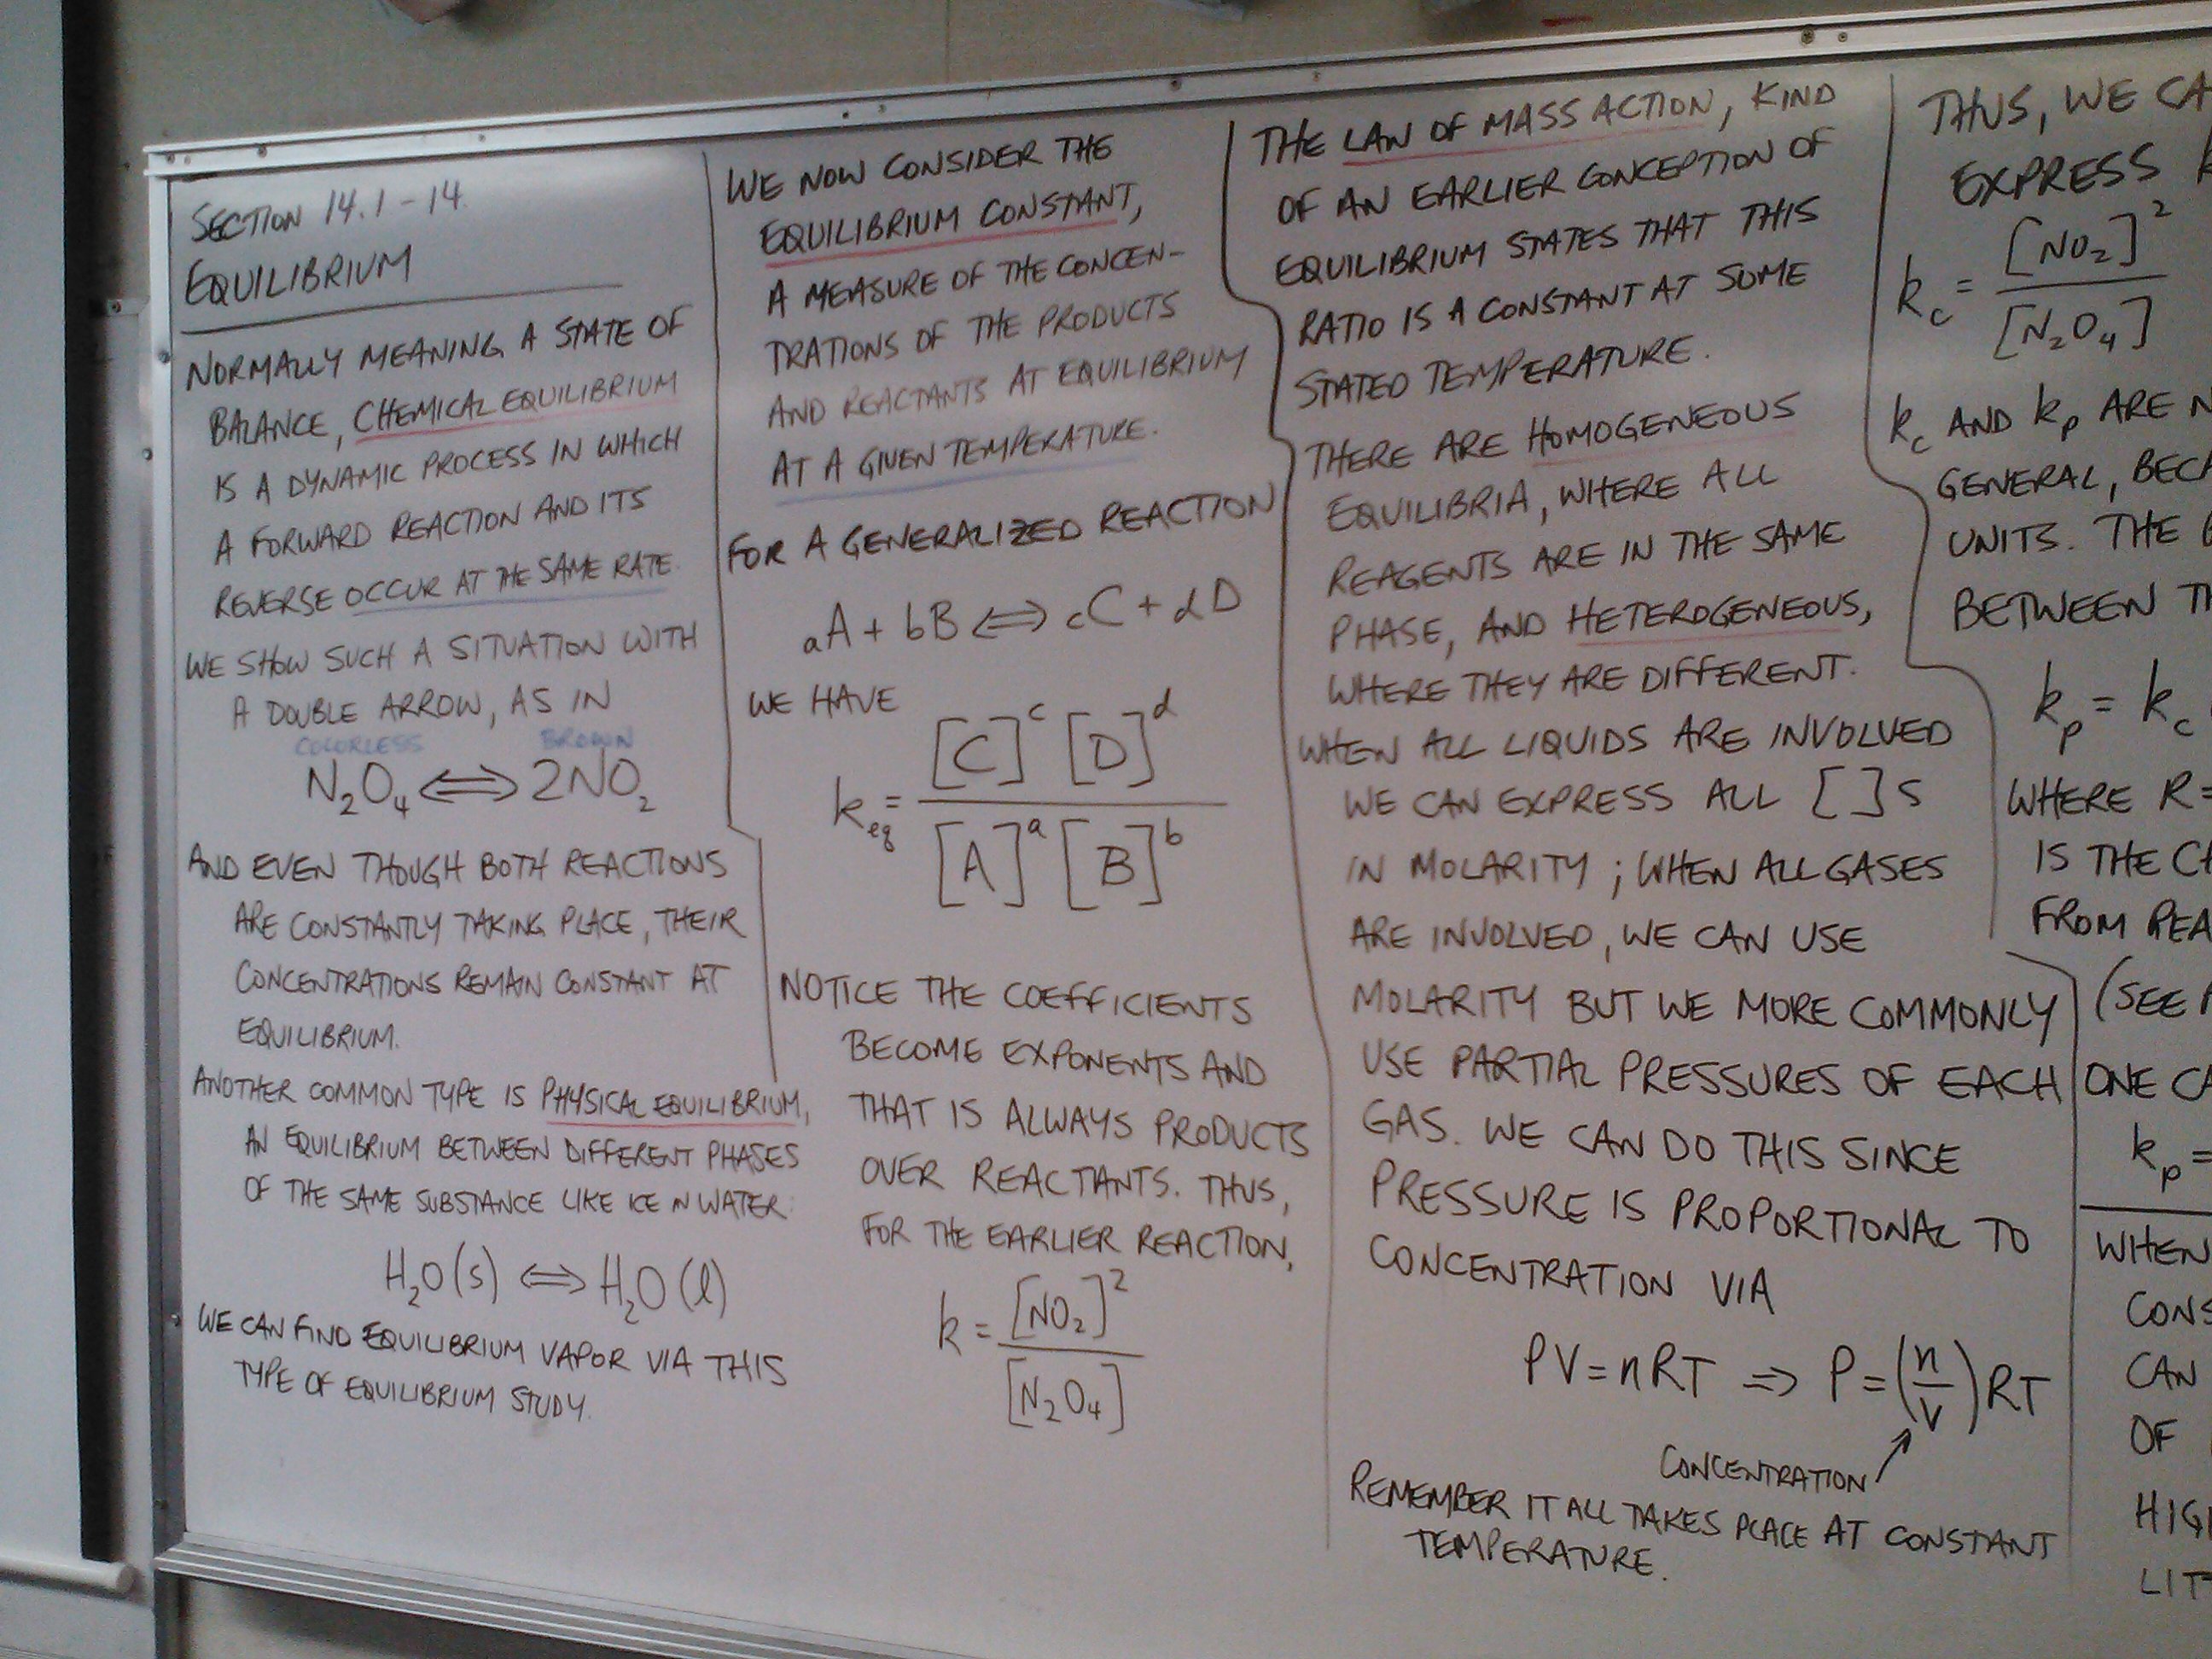 SECTION 14.1-14.
EQUILIBRIUM
NORMALLY MEANING A STATE OF
BALANCE, CHEMICAL EQUILIBRIUM
IS A DYNAMIC PROCESS IN WHICH
A FORWARD REACTION AND ITS
REVERSE OCCUR AT THE SAME RATE.
WE SHOW SUCH A SITUATION WITH
A DOUBLE ARROW, AS IN
COLORLESS BROWN
N₂O₄ ⇔ 2NO₂
AND EVEN THOUGH BOTH REACTIONS
ARE CONSTANTLY TAKING PLACE, THEIR
CONCENTRATIONS REMAIN CONSTANT AT
EQUILIBRIUM.
ANOTHER COMMON TYPE IS PHYSICAL EQUILIBRIUM,
AN EQUILIBRIUM BETWEEN DIFFERENT PHASES
OF THE SAME SUBSTANCE LIKE ICE N WATER:
H₂O(s) ⇔ H₂O(l)
WE CAN FIND EQUILIBRIUM VAPOR VIA THIS
TYPE OF EQUILIBRIUM STUDY.
WE NOW CONSIDER THE
EQUILIBRIUM CONSTANT,
A MEASURE OF THE CONCEN-
TRATIONS OF THE PRODUCTS
AND REACTANTS AT EQUILIBRIUM
AT A GIVEN TEMPERATURE.
FOR A GENERALIZED REACTION
aA + bB ⇔ cC + dD
WE HAVE
[C]ᶜ [D]ᵈ
k_eq =
[A]ᵃ [B]ᵇ
NOTICE THE COEFFICIENTS
BECOME EXPONENTS AND
THAT IS ALWAYS PRODUCTS
OVER REACTANTS. THUS,
FOR THE EARLIER REACTION,
k = [NO₂]²
[N₂O₄]
THE LAW OF MASS ACTION, KIND
OF AN EARLIER CONCEPTION OF
EQUILIBRIUM STATES THAT THIS
RATIO IS A CONSTANT AT SOME
STATED TEMPERATURE.
THERE ARE HOMOGENEOUS
EQUILIBRIA, WHERE ALL
REAGENTS ARE IN THE SAME
PHASE, AND HETEROGENEOUS,
WHERE THEY ARE DIFFERENT.
WHEN ALL LIQUIDS ARE INVOLVED
WE CAN EXPRESS ALL [ ]s
IN MOLARITY; WHEN ALL GASES
ARE INVOLVED, WE CAN USE
MOLARITY BUT WE MORE COMMONLY
USE PARTIAL PRESSURES OF EACH
GAS. WE CAN DO THIS SINCE
PRESSURE IS PROPORTIONAL TO
CONCENTRATION VIA
PV = nRT ⇒ P = (n/V)RT
CONCENTRATION
REMEMBER IT ALL TAKES PLACE AT CONSTANT
TEMPERATURE.
THUS, WE CA
EXPRESS k
k_c = [NO₂]²
[N₂O₄]
k_c AND k_p ARE N
GENERAL, BECA
UNITS. THE
BETWEEN TH
k_p = k_c
WHERE R =
IS THE CH
FROM REA
(SEE
ONE CA
k_p =
WHEN
CONS
CAN
OF
HIGH
LIT